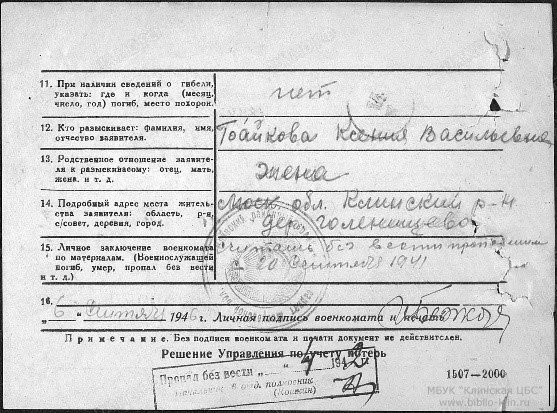 11. При наличии сведений о гибели,
указать: где и когда (месяц,
число, год) погиб, место похорон.
нет
12. Кто разыскивает: фамилия, имя,
отчество заявителя.
Тойкова Ксения Васильевна
13. Родственное отношение заявите-
ля к разыскиваемому: отец, мать,
жена. и т. д.
жена
14. Подробный адрес места житель-
ства заявителя: область, р-н,
с/совет, деревня, город.
Моск. обл. Клинский р-н
дер. Голенищево
15. Личное заключение военкомата
по материалам. (Военнослужащей
погиб, умер, пропал без вести
и т. д.)
считать без вести пропавшим
20 сентября 1941
16.
„ 6 " 1946 г. Личная подпись военкомата и печать
Примечание. Без подписи военкомата и печати документ не действителен.
Решение Управления по учету потерь
Пропал без вести „ 194 2 г.
подполковник
1507—2000
МБУК "Клинская ЦБС"
www.biblio-klin.ru